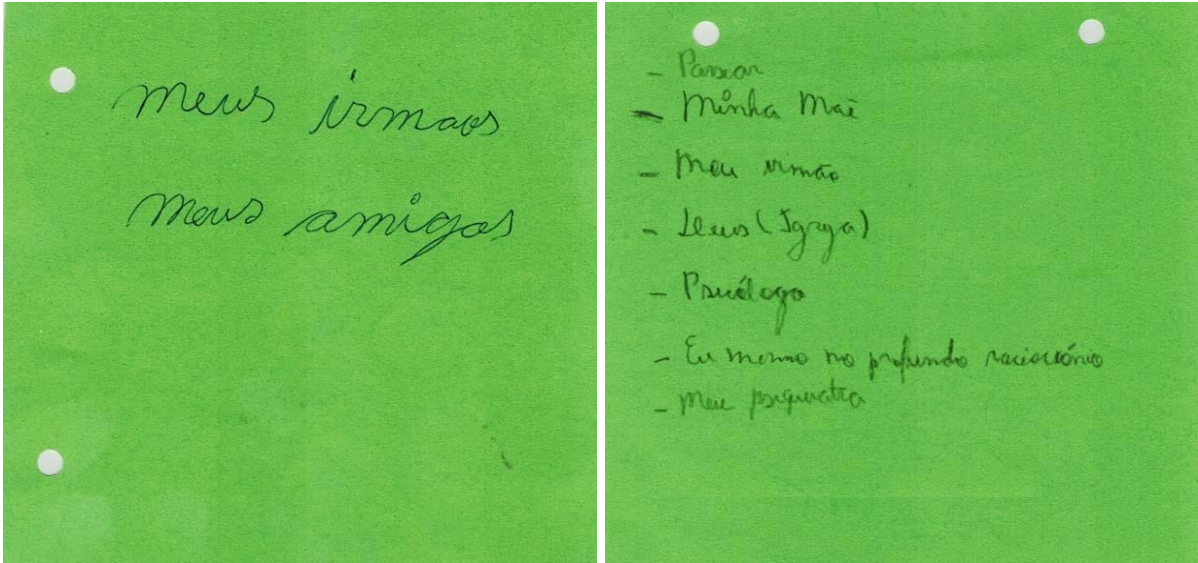 meus irmaos
meus amigos
- Passear
- Minha Mãe
- Meu irmão
- Deus (Igreja)
- Psicólogo
- Eu mesmo no profundo raciocínio
- Meu psiquiatra